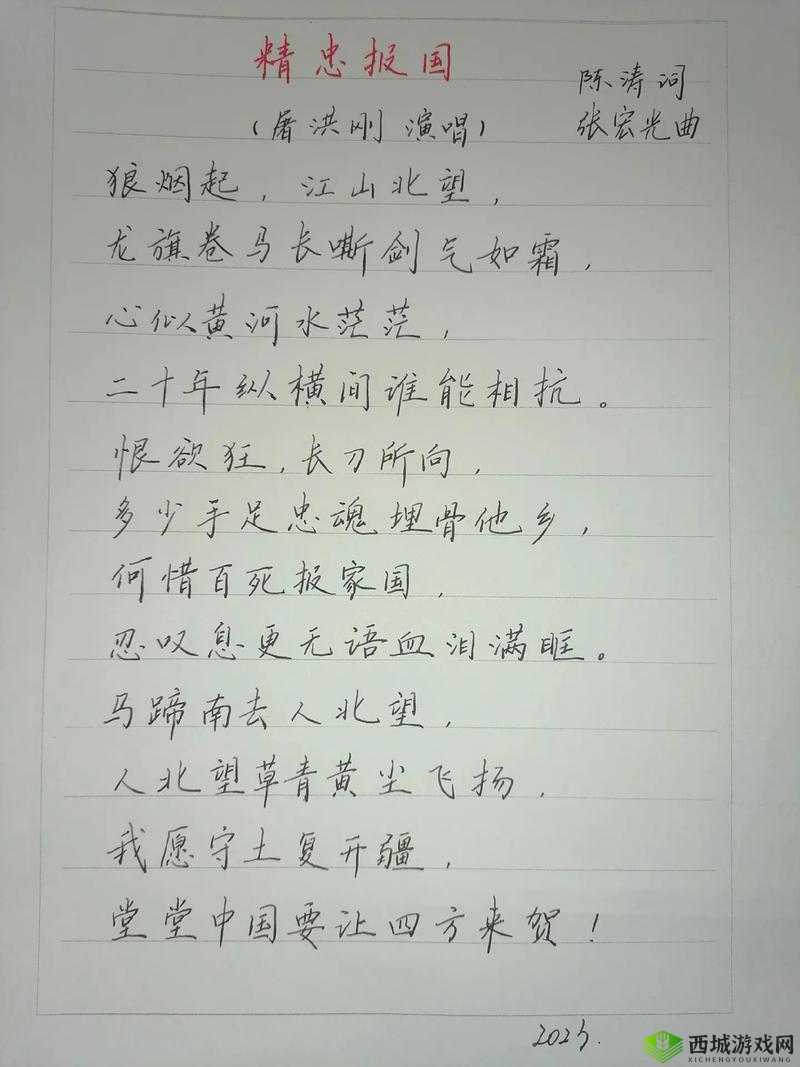 精忠报国
陈涛词
（屠洪刚 演唱）
张宏光曲
狼烟起，江山北望，
龙旗卷马长嘶剑气如霜，
心似黄河水茫茫，
二十年纵横间谁能相抗。
恨欲狂，长刀所向，
多少手足忠魂埋骨他乡，
何惜百死报家国，
忍叹息更无语血泪满眶。
马蹄南去人北望，
人北望草青黄尘飞扬，
我愿守土复开疆，
堂堂中国要让四方来贺！
2023.
西城游戏网
XICHENGYOUXIWANG